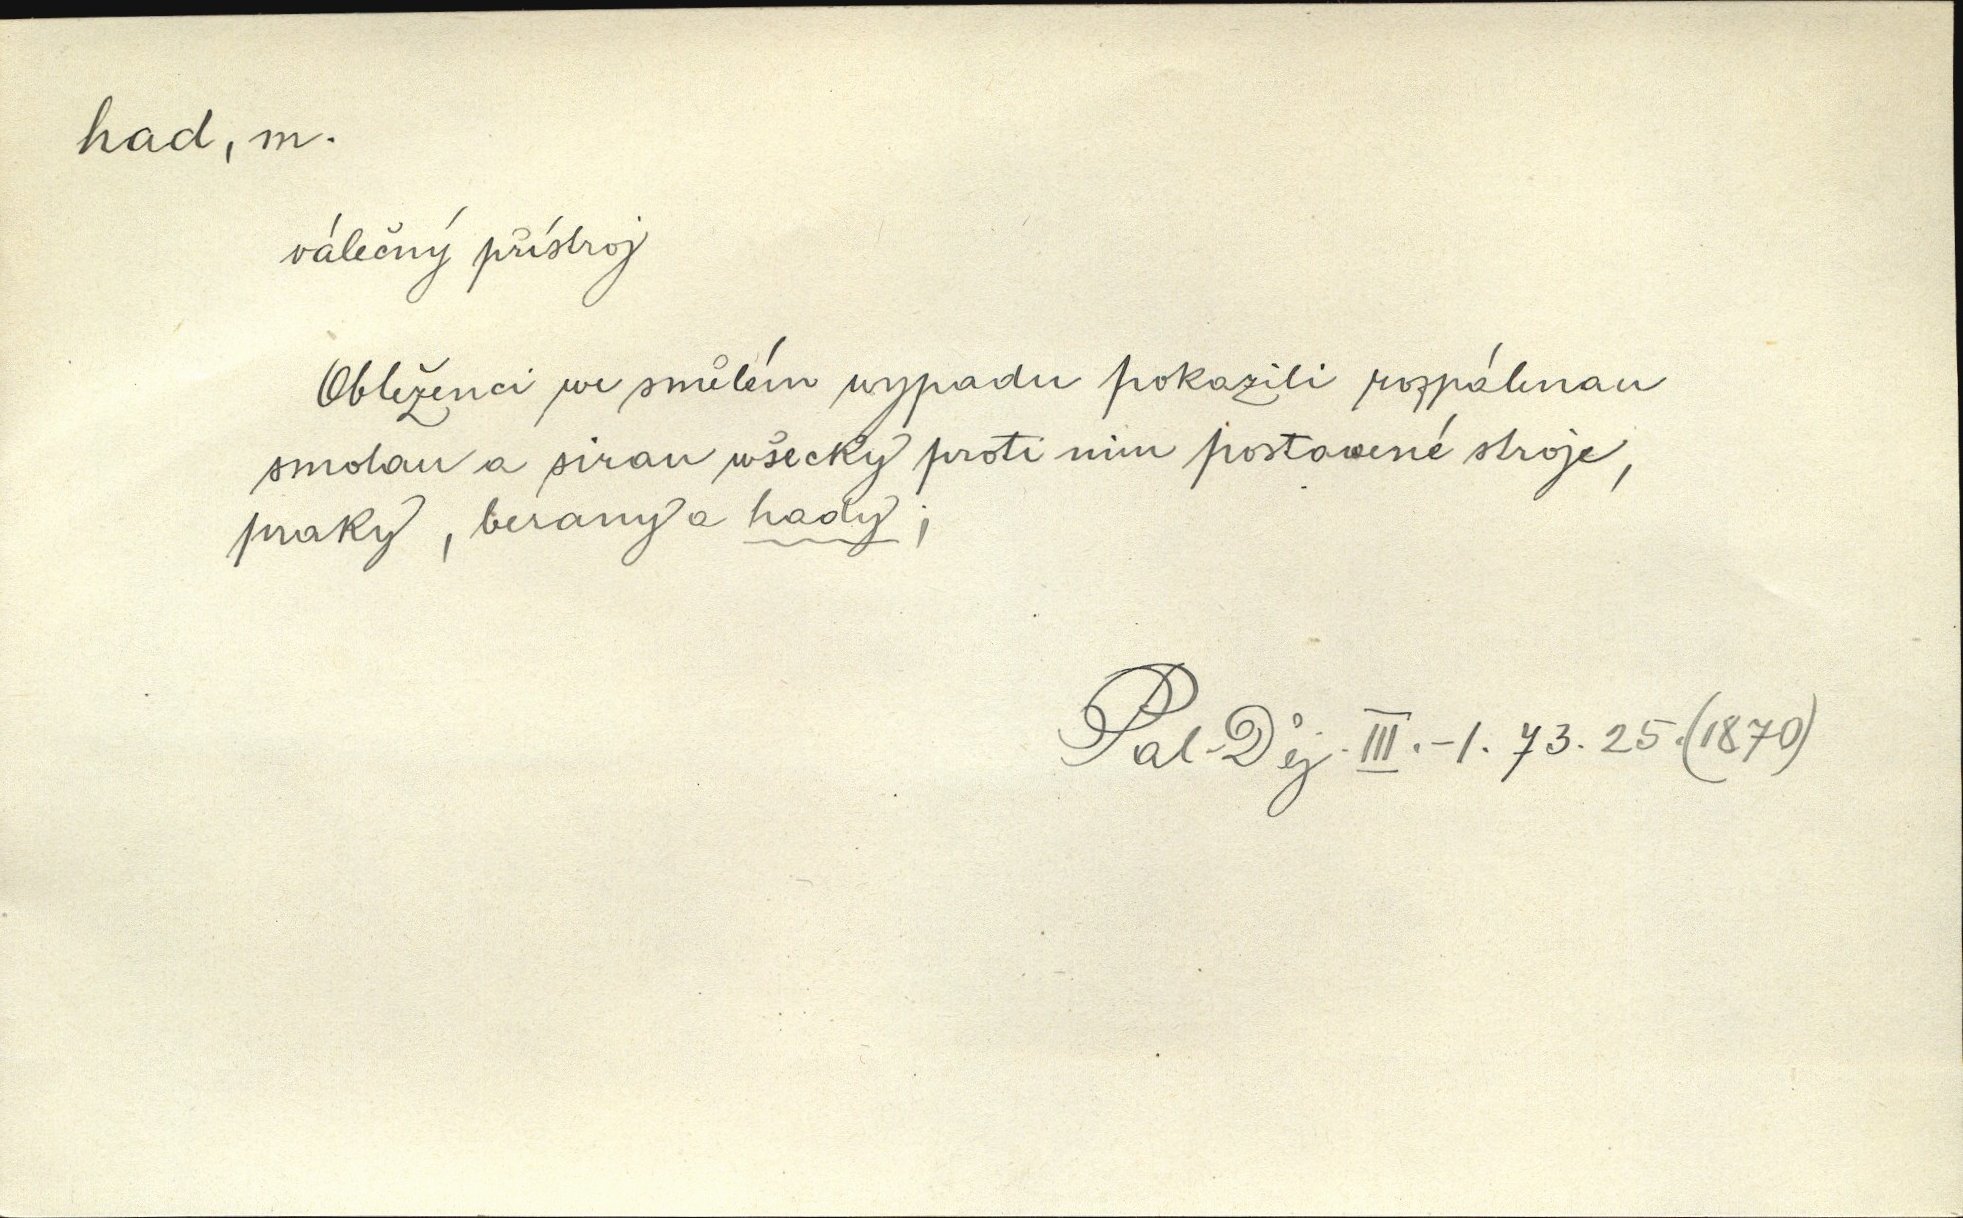 had, m.
válečný přístroj
Obleženci we smělém wypadu pokazili rozpálenau
smolau a sirau wšecky proti nim postawené stroje,
praky, berany a hady;
Pal-Děj. III.-1. 73. 25. (1870)